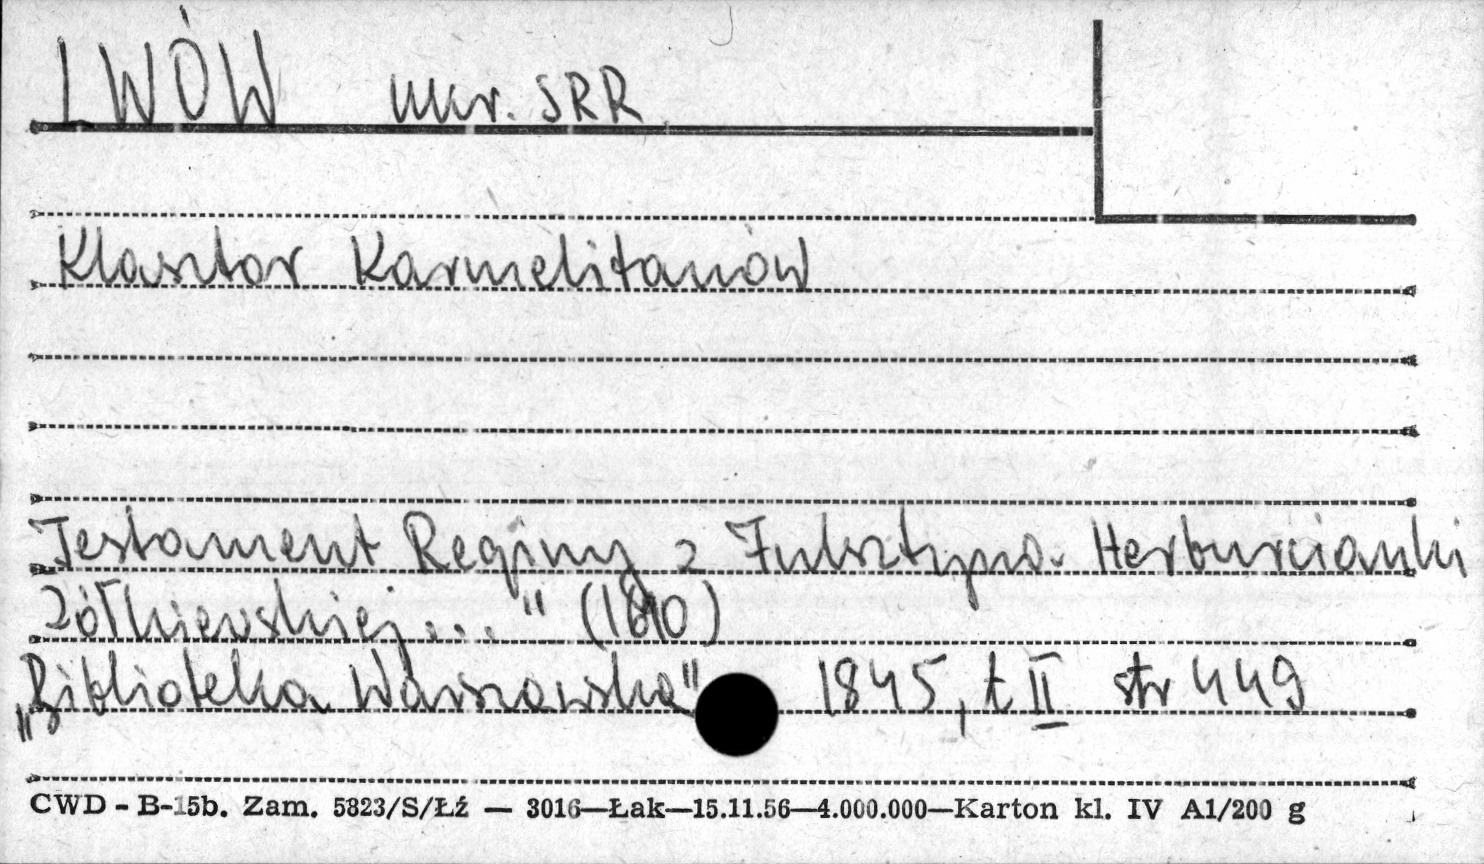 LWÓW ukr. SRR
Klasztor Karmelitanów
Testament Reginy z Fulsztyna Herburcianki
Żółkiewskiej..." (1610)
„Biblioteka Warszawska" 1845, t II str 449
CWD - B-15b. Zam. 5823/S/Łź — 3016—Łak—15.11.56—4.000.000—Karton kl. IV A1/200 g